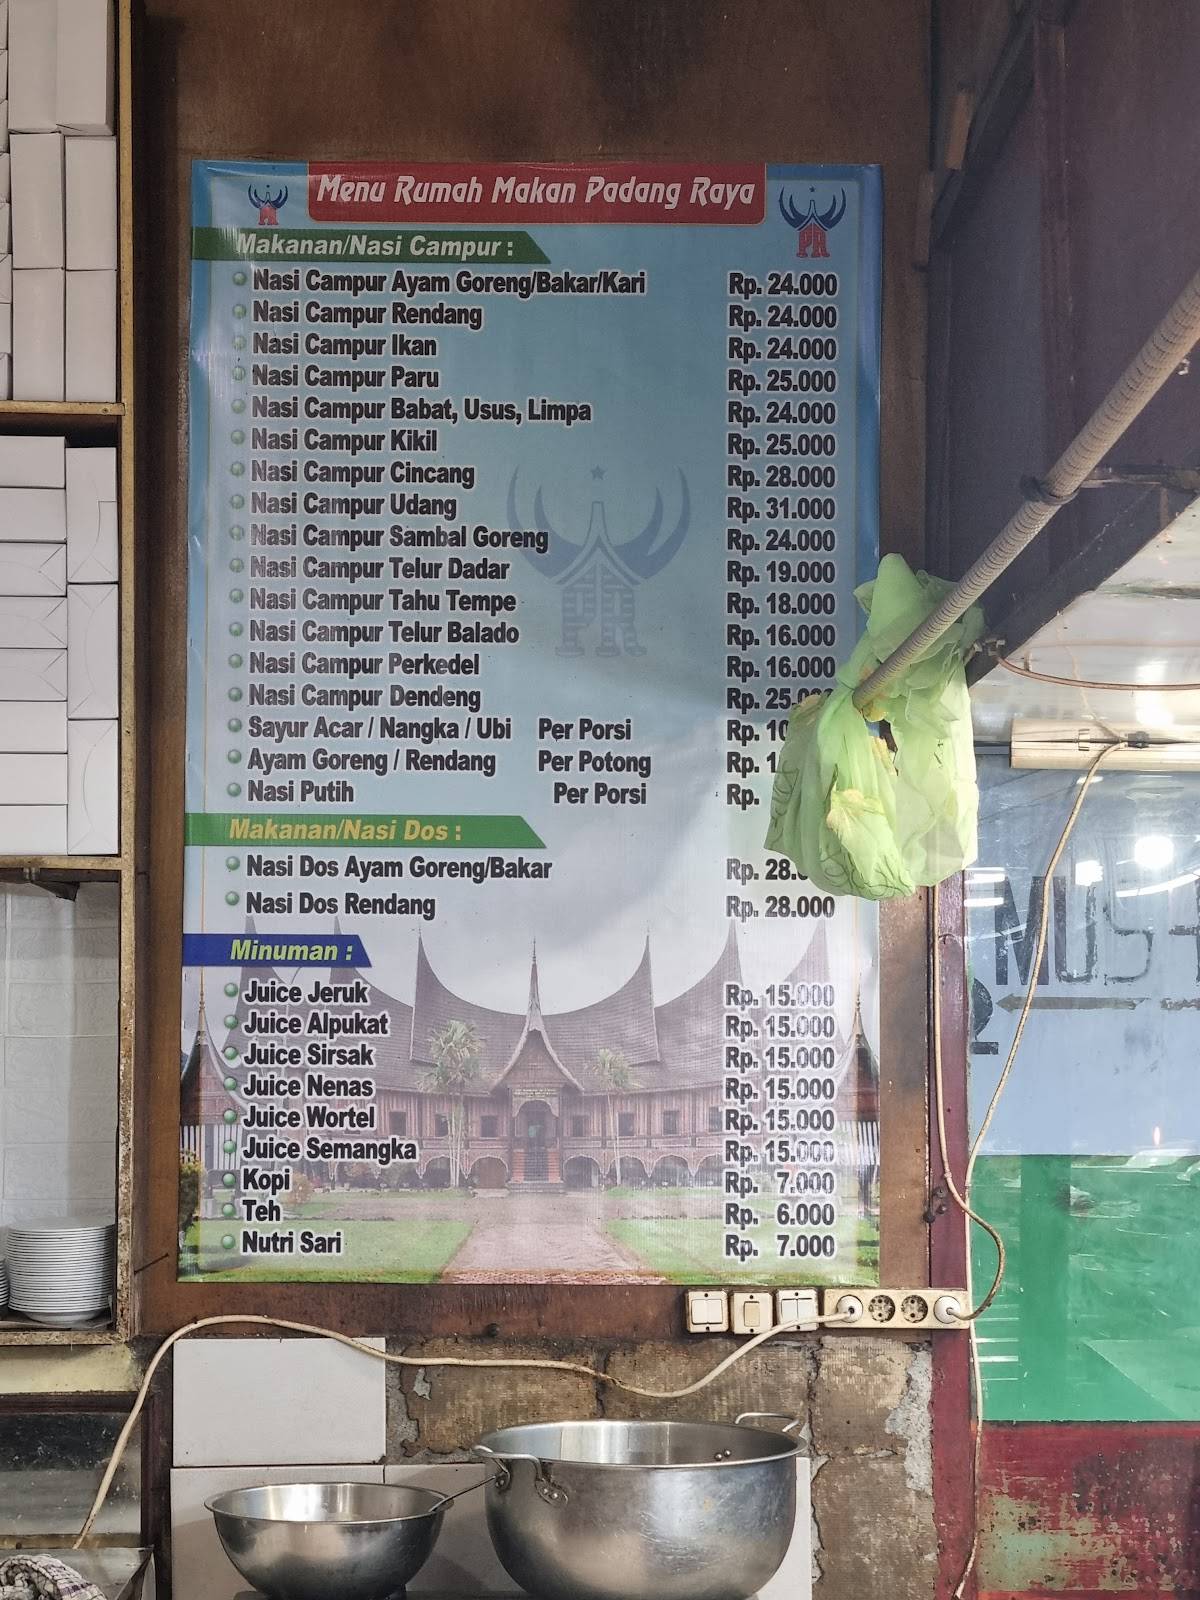 Menu Rumah Makan Padang Raya
PR
PR
Makanan/Nasi Campur :
Nasi Campur Ayam Goreng/Bakar/Kari Rp. 24.000
Nasi Campur Rendang Rp. 24.000
Nasi Campur Ikan Rp. 24.000
Nasi Campur Paru Rp. 25.000
Nasi Campur Babat, Usus, Limpa Rp. 24.000
Nasi Campur Kikil Rp. 25.000
Nasi Campur Cincang Rp. 28.000
Nasi Campur Udang Rp. 31.000
Nasi Campur Sambal Goreng Rp. 24.000
Nasi Campur Telur Dadar Rp. 19.000
Nasi Campur Tahu Tempe Rp. 18.000
Nasi Campur Telur Balado Rp. 16.000
Nasi Campur Perkedel Rp. 16.000
Nasi Campur Dendeng Rp. 25.000
Sayur Acar / Nangka / Ubi Per Porsi Rp. 10
Ayam Goreng / Rendang Per Potong Rp. 1
Nasi Putih Per Porsi Rp.
Makanan/Nasi Dos :
Nasi Dos Ayam Goreng/Bakar Rp. 28.
Nasi Dos Rendang Rp. 28.000
Minuman :
Juice Jeruk Rp. 15.000
Juice Alpukat Rp. 15.000
Juice Sirsak Rp. 15.000
Juice Nenas Rp. 15.000
Juice Wortel Rp. 15.000
Juice Semangka Rp. 15.000
Kopi Rp. 7.000
Teh Rp. 6.000
Nutri Sari Rp. 7.000
PR
MUS